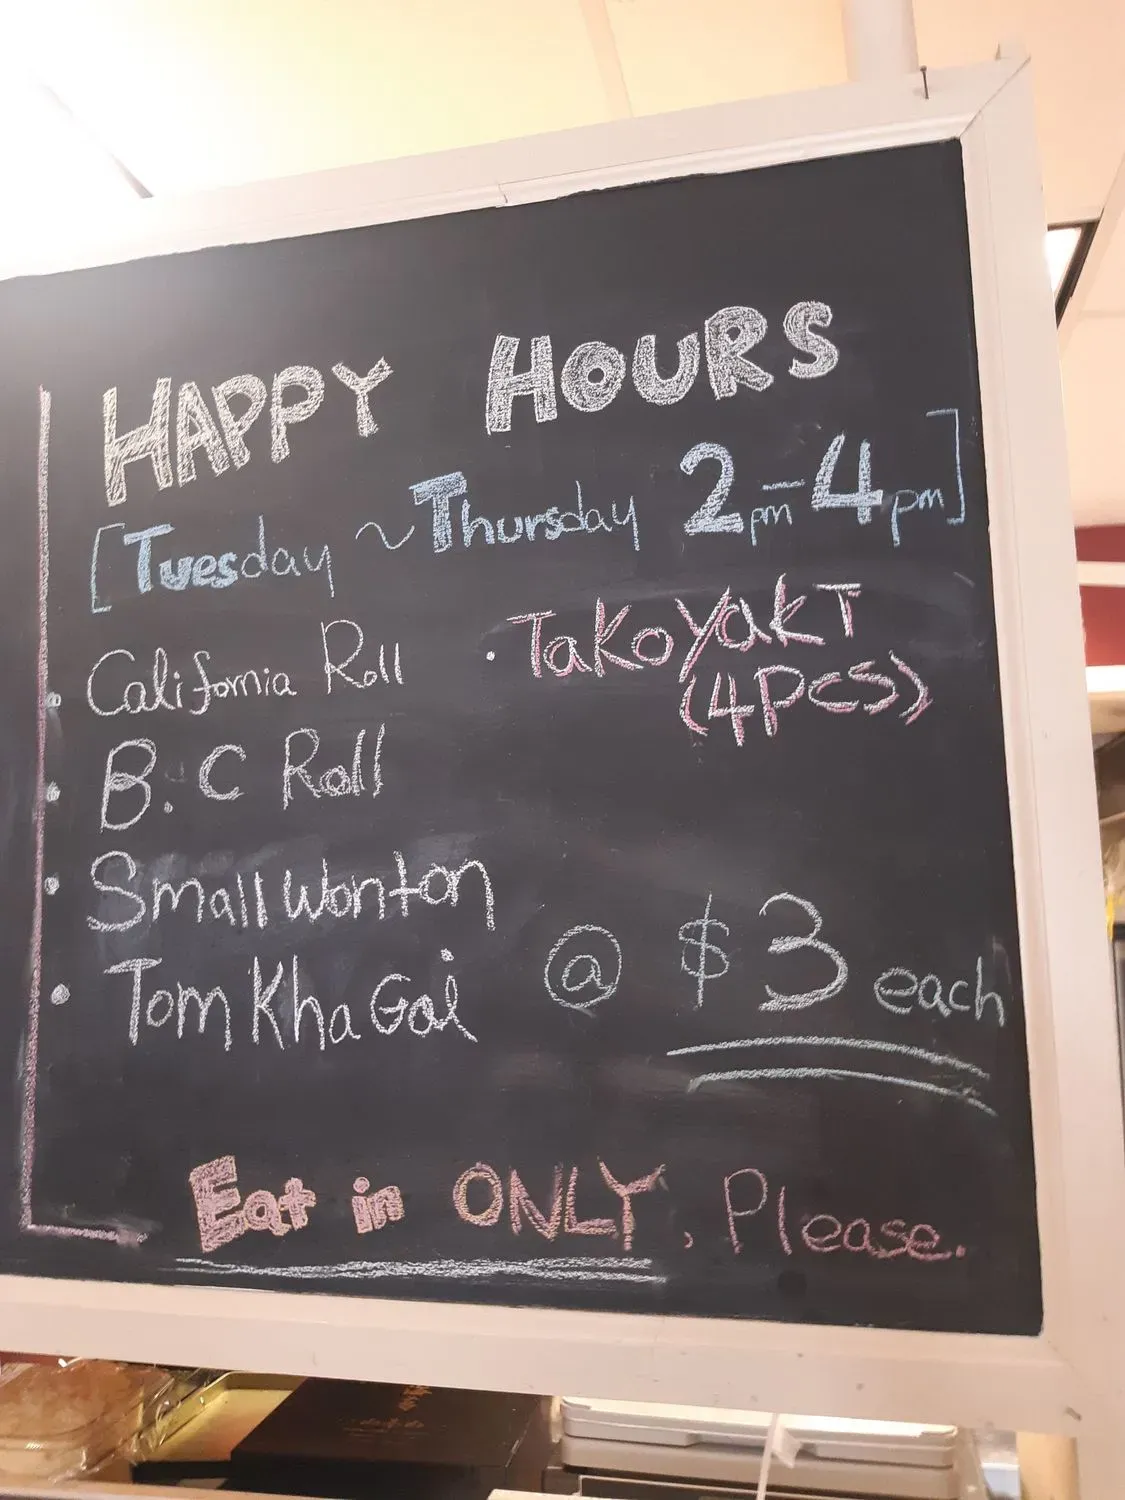 HAPPY HOURS
[Tuesday ~ Thursday 2pm-4pm]
• California Roll
• B.C Roll
• Small Wonton
• Tom Kha Gai
• TakoyakI
(4PCS)
@ $3 each
Eat in ONLY, Please.